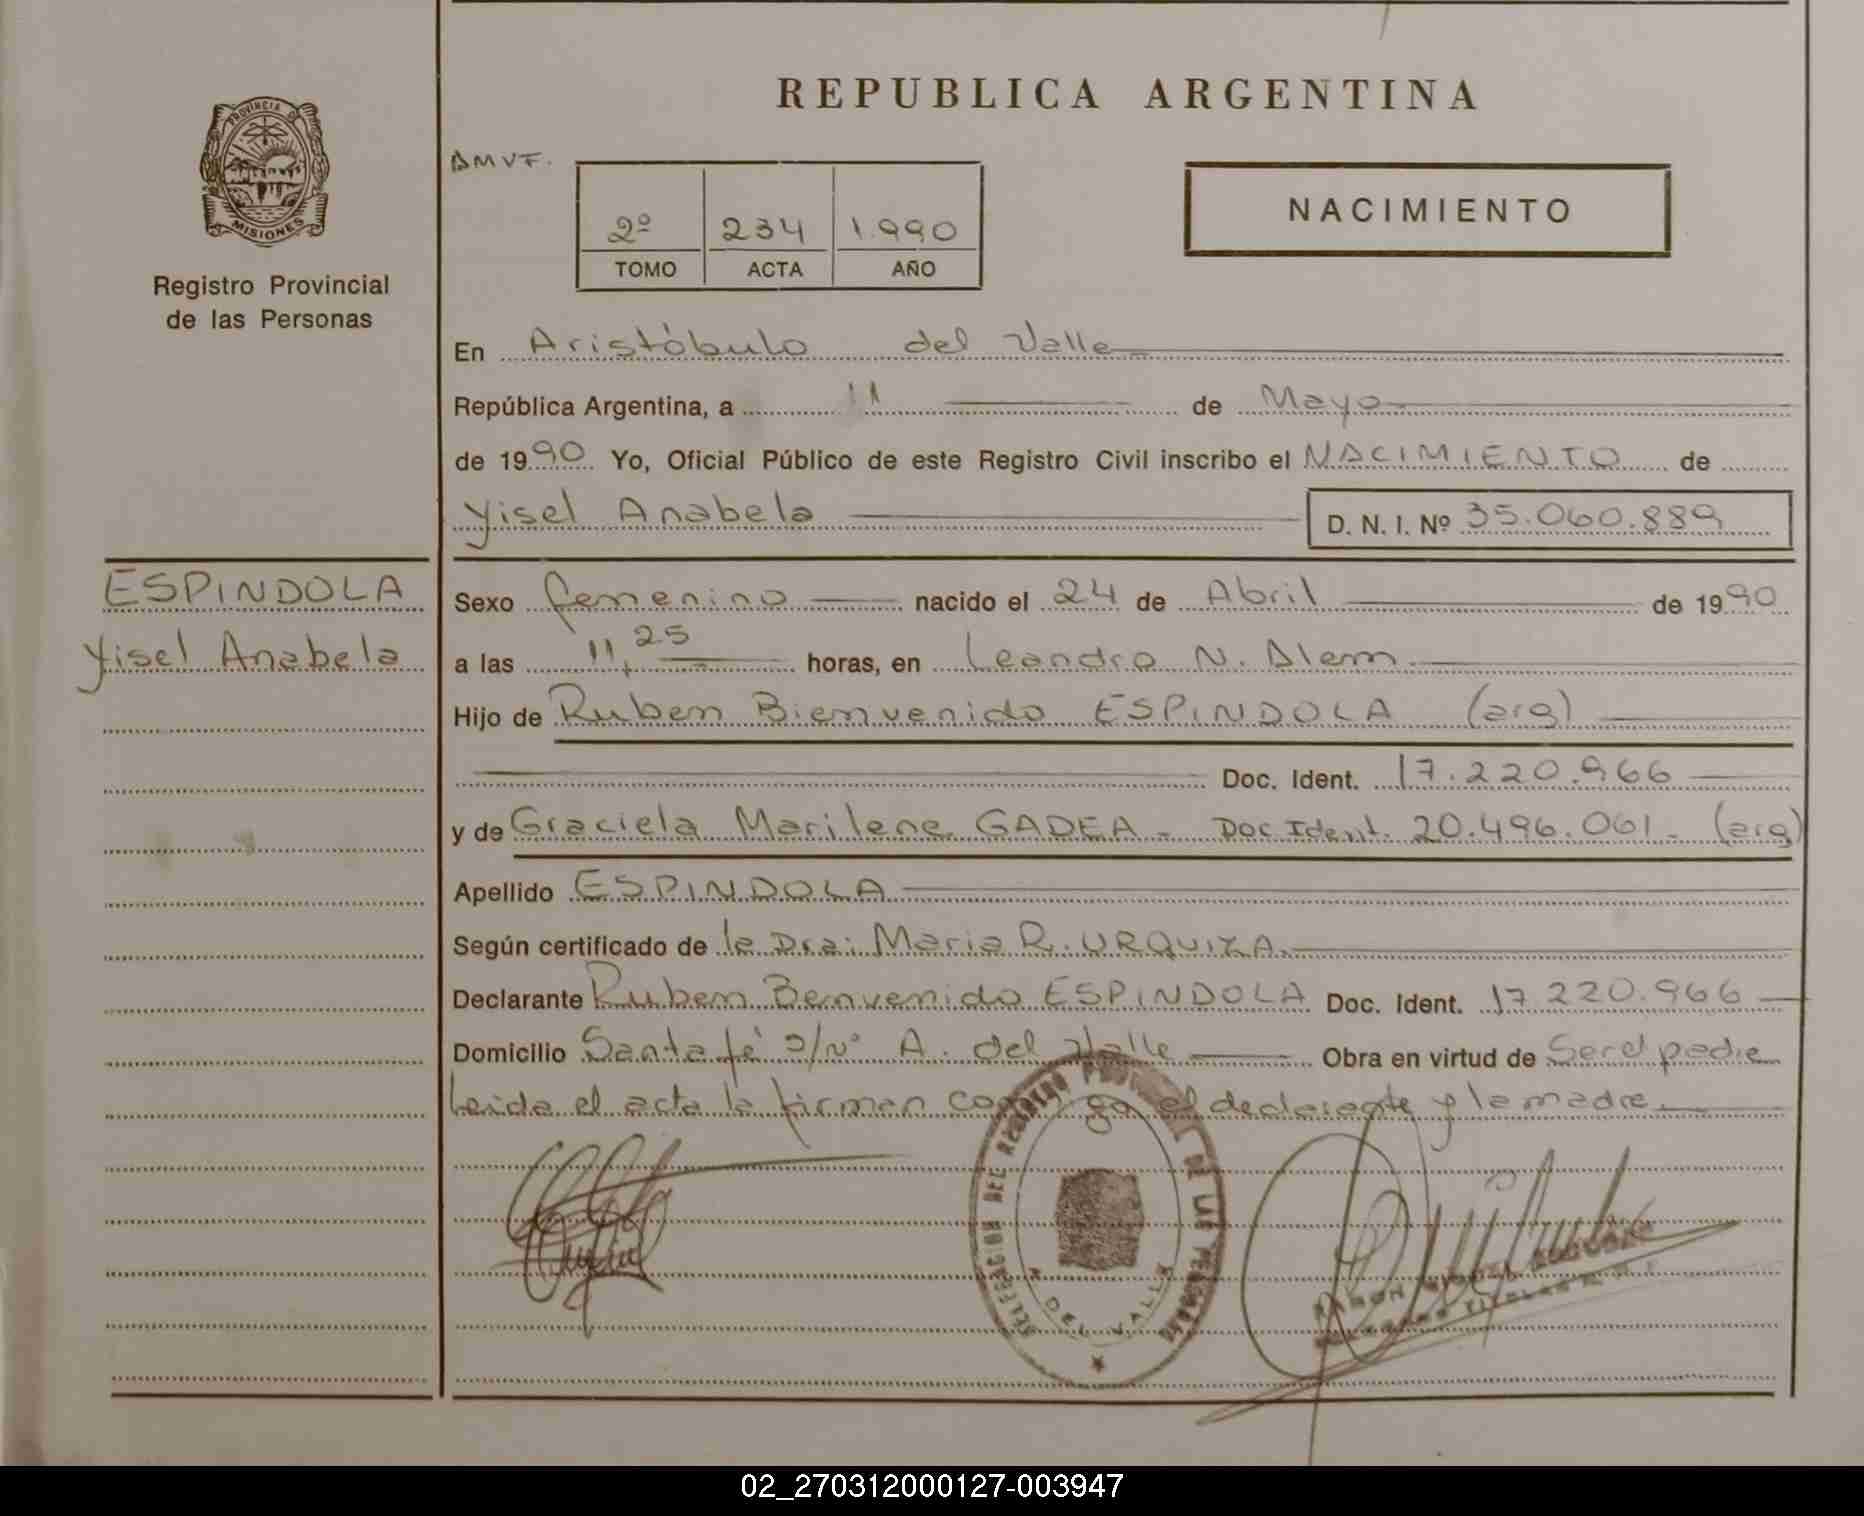 REPUBLICA ARGENTINA
PROVINCIA DE
MISIONES
Registro Provincial
de las Personas
AMVF.
2º 234 1.990
TOMO ACTA AÑO
NACIMIENTO
En Aristóbulo del Valle
República Argentina, a 11 de Mayo
de 1990 Yo, Oficial Público de este Registro Civil inscribo el NACIMIENTO de
Yisel Anabela D. N. I. Nº 35.060.889
ESPINDOLA
Yisel Anabela
Sexo femenino nacido el 24 de Abril de 1990
a las 11,25 horas, en Leandro N. Alem
Hijo de Ruben Bienvenido ESPINDOLA (arg)
Doc. Ident. 17.220.966
y de Graciela Marilene GADEA - Doc Ident. 20.496.061 - (arg)
Apellido ESPINDOLA
Según certificado de la Dra: Maria R. URQUIZA
Declarante Ruben Benvenido ESPINDOLA Doc. Ident. 17.220.966
Domicilio Santa fé S/Nº A. del Valle Obra en virtud de Ser el padre
Leida el acta la firman conmigo el declarante y la madre
DELEGACION DEL REGISTRO PROVINCIAL DE LAS PERSONAS
A. DEL VALLE
RAMON
02_270312000127-003947